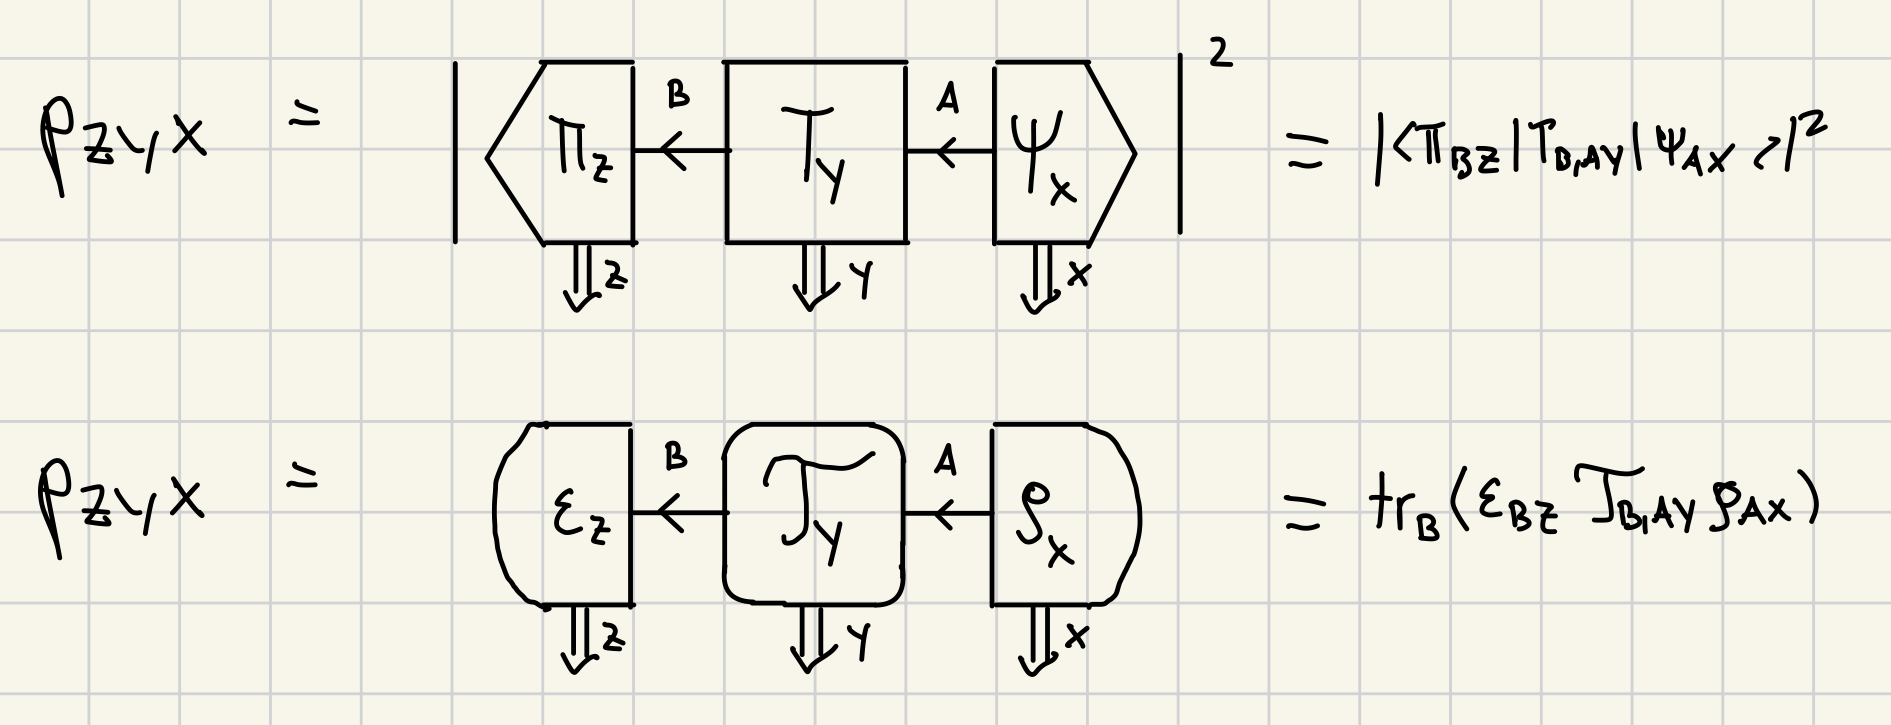 p_{zyx} = | π_z B T_y A ψ_x |^2 = |<π_{Bz}|T_{B,Ay}|ψ_{Ax}>|^2
z y x
p_{zyx} = ε_z B 𝒯_y A ρ_x = tr_B(ε_{Bz} 𝒯_{B,Ay} ρ_{Ax})
z y x